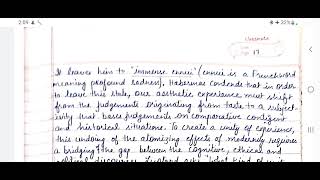 2:09
22%
classmate
17
It leaves him to "immense ennui" (ennui is a French word
meaning profound sadness). Habermas contends that in order
to leave this state, our aesthetic experience must shift
from the judgements originating from taste to a subject-
ivity that bases judgements on comparative contigent
and historical situations. To create a unity of experience,
this undoing of the atomizing effects of modernity requires
a bridging the gap between the cognitive, ethical and